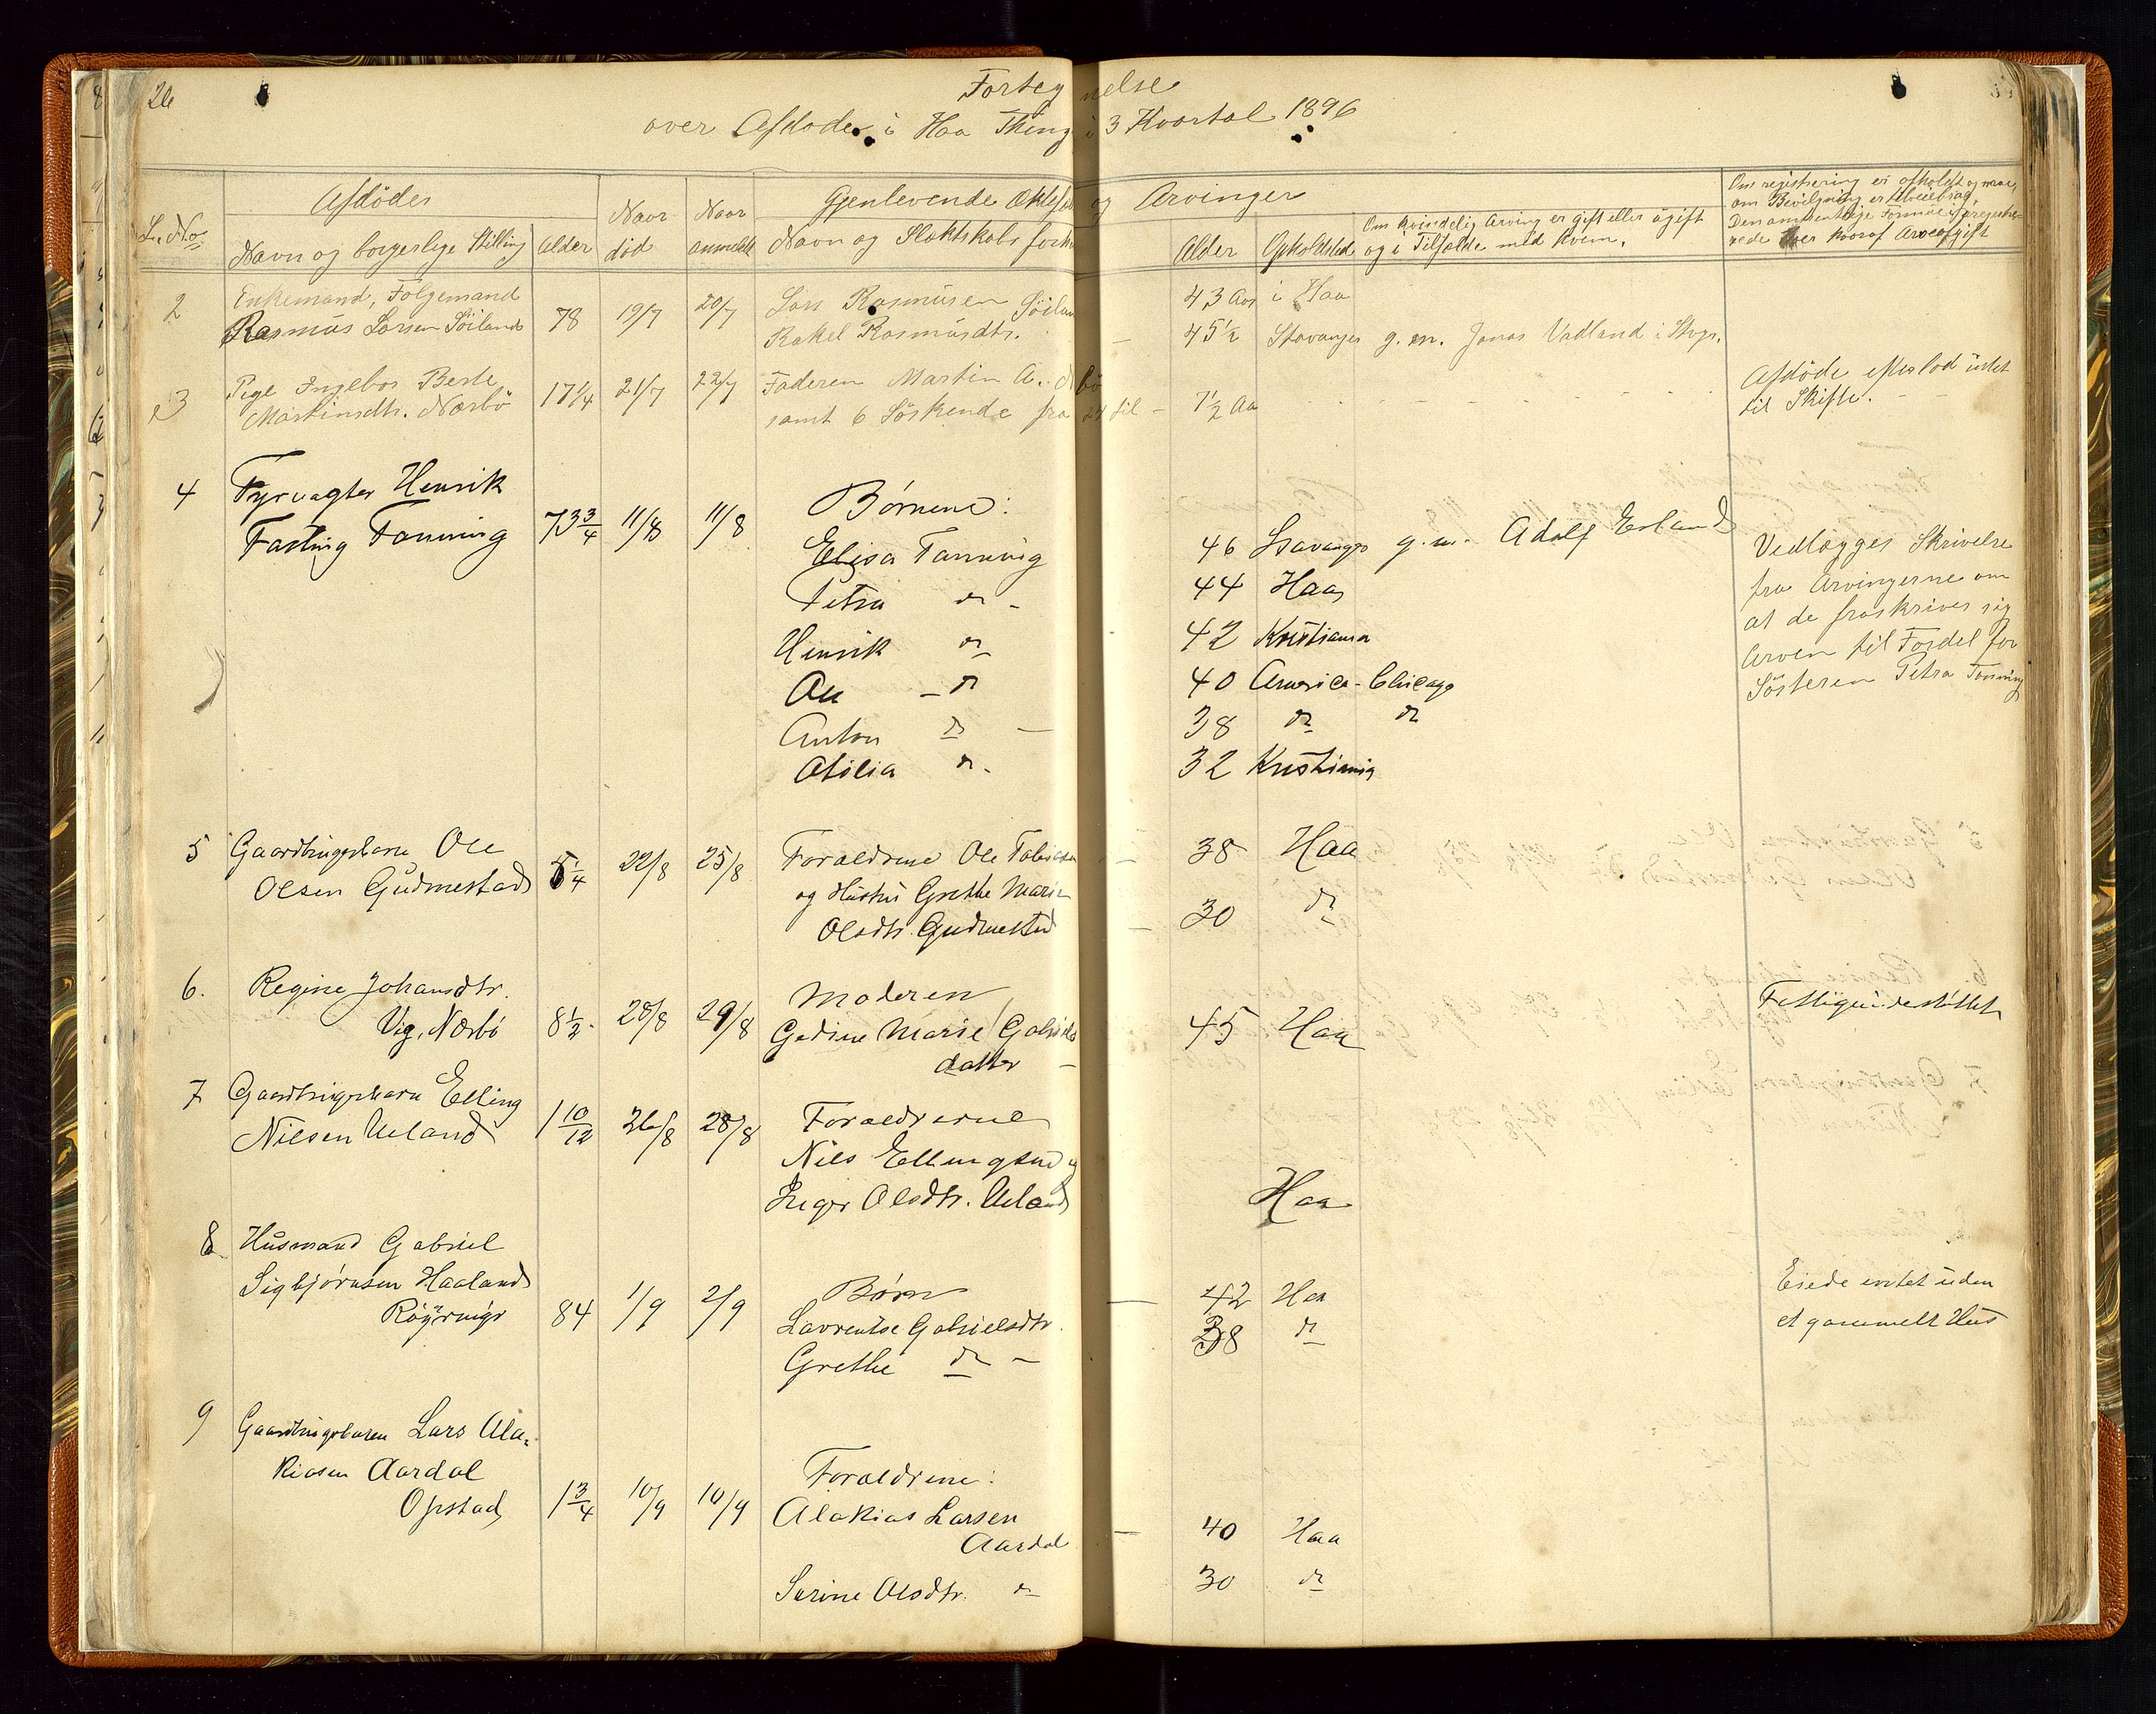 26
Fortegnelse
over Afdøde i Haa Thing i 3 Kvartal 1896
L. No
Afdødes
Navn og borgerlige Stilling
Alder
Naar død
Naar anmeldt
Gjenlevende Ektefæl og Arvinger
Navn og Slektskabs forh
Alder
Opholdsted
Om kvindelig Arving er gift eller ugift
og i Tilfælde med hvem.
Om registrering er afholdt og naar,
om Bevilgning er
2 Enkemand, Følgemand
Rasmus Larsen Søiland 78 19/7 20/7 Lars Rasmusen Søiland 43 Aar i Haa
Rakel Rasmusdtr. - 45 1/2 Stavanger g. m. Jonas Vadland i Stvgr.
3 Pige Ingebor Berte
Martinsdtr. Nærbø 17 1/4 21/7 22/7 Faderen Martin A.
samt 6 Søskende fra 24 til - 7 1/2 Aar
Afdøde efterlod intet
til Skifte.
4 Fyrvagter Henrik
Fasting Tonning 73 3/4 11/8 11/8 Børnene:
Elisa Tonning 46 Stavanger g. m. Adolf Erland
Petra do - 44 Haa
Henrik do 42 Kristiania
Ole - do 40 America - Chicago
Anton do - 38 do do
Otilia do - 32 Kristiania
Vedlægges Skrivelse
fra Arvingerne om
at de fraskriver sig
Arven til Fordel for
Søsteren Petra Tonning
5 Gaardbrugerbarn Ole
Olsen Gudmestad 5/4 22/8 25/8 Forældrene Ole Tobiasen - 38 Haa
og Hustru Grethe Marie
Olsdtr. Gudmestad - 30 do
6. Regine Johansdtr.
Vig, Nærbø 8 1/2 28/8 29/8 Moderen
Gedine Marie Gabriels
datter - 45 Haa
Fattigunderstøttet
7 Gaardbrugerbarn Elling
Nilsen Ueland 1 10/12 26/8 28/8 Forældrerne
Nils Ellingsen og
Inger Olsdtr. Ueland Haa
8 Husmand Gabriel
Sigbjørnsen Haaland
84 1/9 2/9 Børn
Lavrentse Gabrielsdtr. - 42 Haa
Grethe do - 38 do
Eiede intet uden
et gammelt Hus
9 Gaardbrugerbarn Lars Ala-
kiasen Aardal
Opstad 1 3/4 10/9 10/9 Forældrene:
Alakias Larsen
Aardal - 40 Haa
Serine Olsdtr. do 30 do